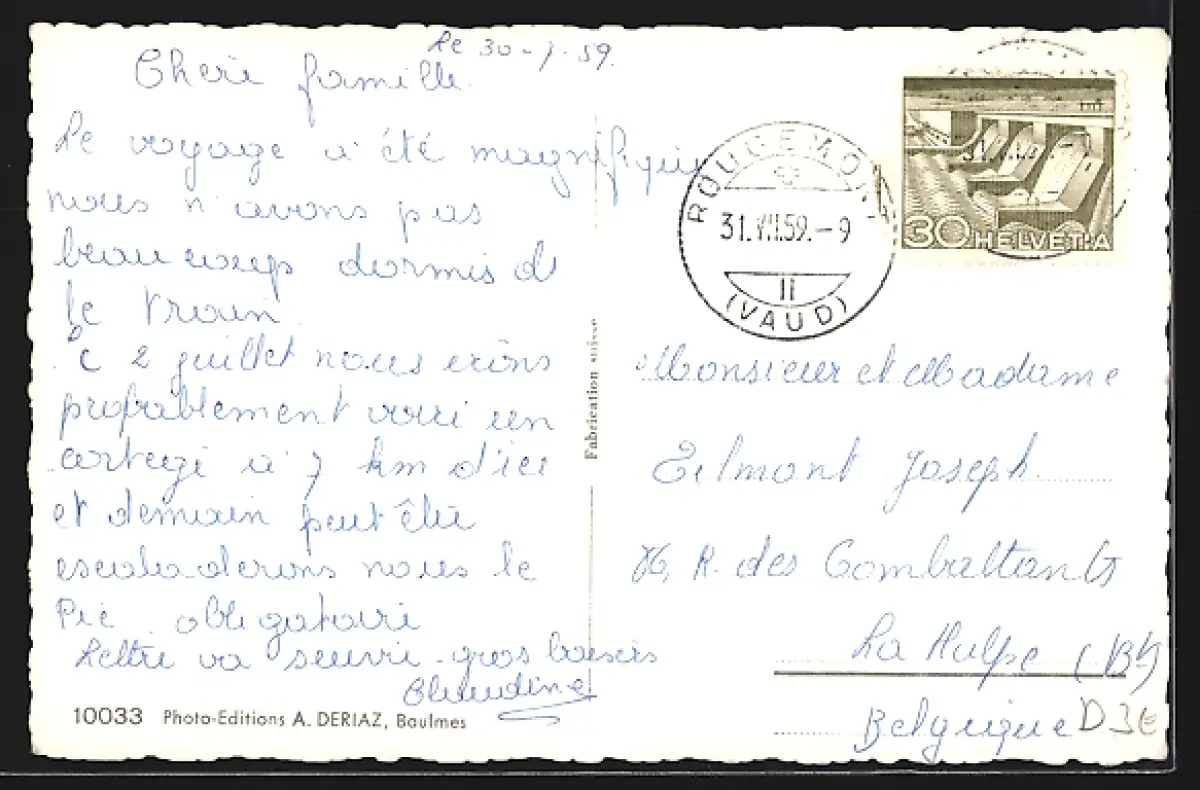 Le 30-7-59.
Cheri famille.
Le voyage a été magnifique
nous n'avons pas
beaucoup dormis ds
le train.
Le 2 juillet nous irons
probablement voir un
cortege a 7 km d'ici
et demain peut être
escaladerons nous le
Pic obligatoire
Lettre va suivre. gros baisers
Claudine
10033 Photo-Editions A. DERIAZ, Baulmes
Fabrication suisse
ROUGEMONT
31.VII.59.-9
II
(VAUD)
30 HELVETIA
Monsieur et Madame
Joseph
R. des Combattants
La Hulpe (Bt)
Belgique
D3E